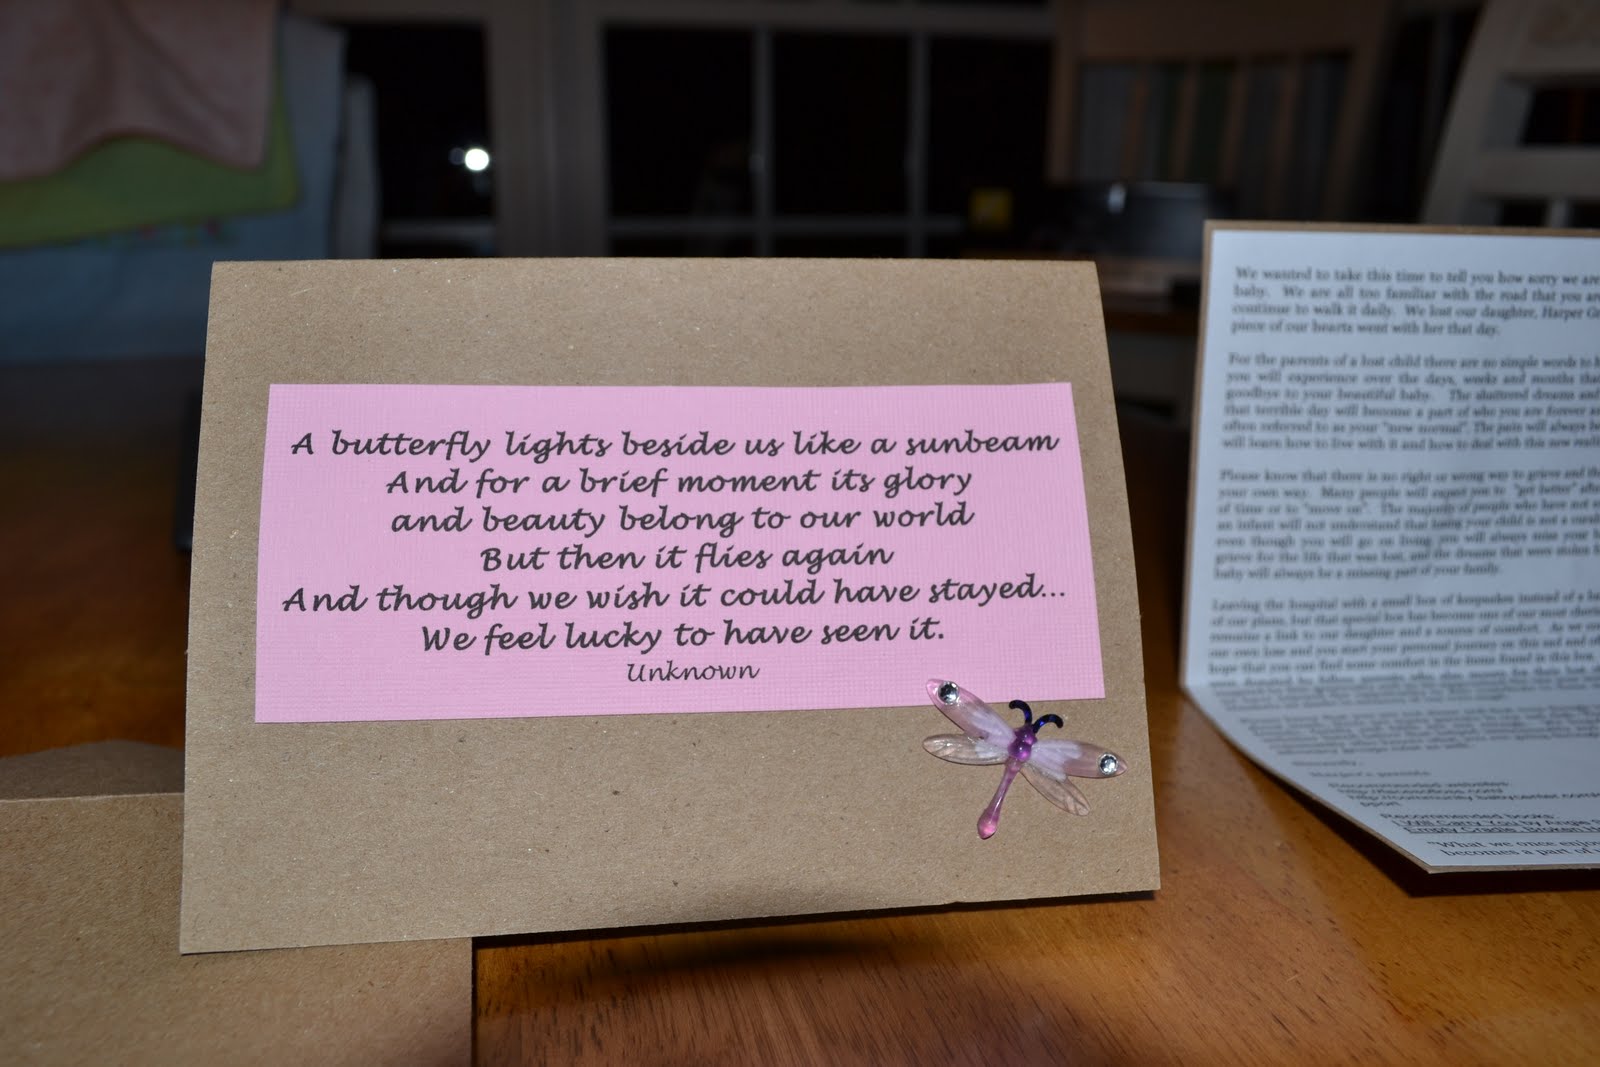 A butterfly lights beside us like a sunbeam
And for a brief moment its glory
and beauty belong to our world
But then it flies again
And though we wish it could have stayed...
We feel lucky to have seen it.
Unknown
We wanted to take this time to tell you how sorry we are
baby. We are all too familiar with the road that you are
continue to walk it daily. We lost our daughter, Harper
piece of our hearts went with her that day.
For the parents of a lost child there are no simple words to
you will experience over the days, weeks and months that
goodbye to your beautiful baby. The shattered dreams and
that terrible day will become a part of who you are forever
often referred to as your "new normal". The pain will always
will learn how to live with it and how to deal with this new
Please know that there is no right or wrong way to grieve and
your own way. Many people will expect you to "get better"
of time or to "move on". The majority of people who have not
an infant will not understand that losing your child is not a
even though you will go on living you will always miss your
grieve for the life that was lost, and the dreams that were stolen
baby will always be a missing part of your family.
Leaving the hospital with a small box of keepsakes instead of a
of our plans, but that special box has become one of our most
remains a link to our daughter and a source of comfort. As we
our own loss and you start your personal journey on this sad and
hope that you can find some comfort in the items found in this box.
Sincerely,
Harper's parents
Recommended websites
Recommended books:
I Will Carry You by Angie
Empty Cradle, Broken
"What we once
becomes a part of